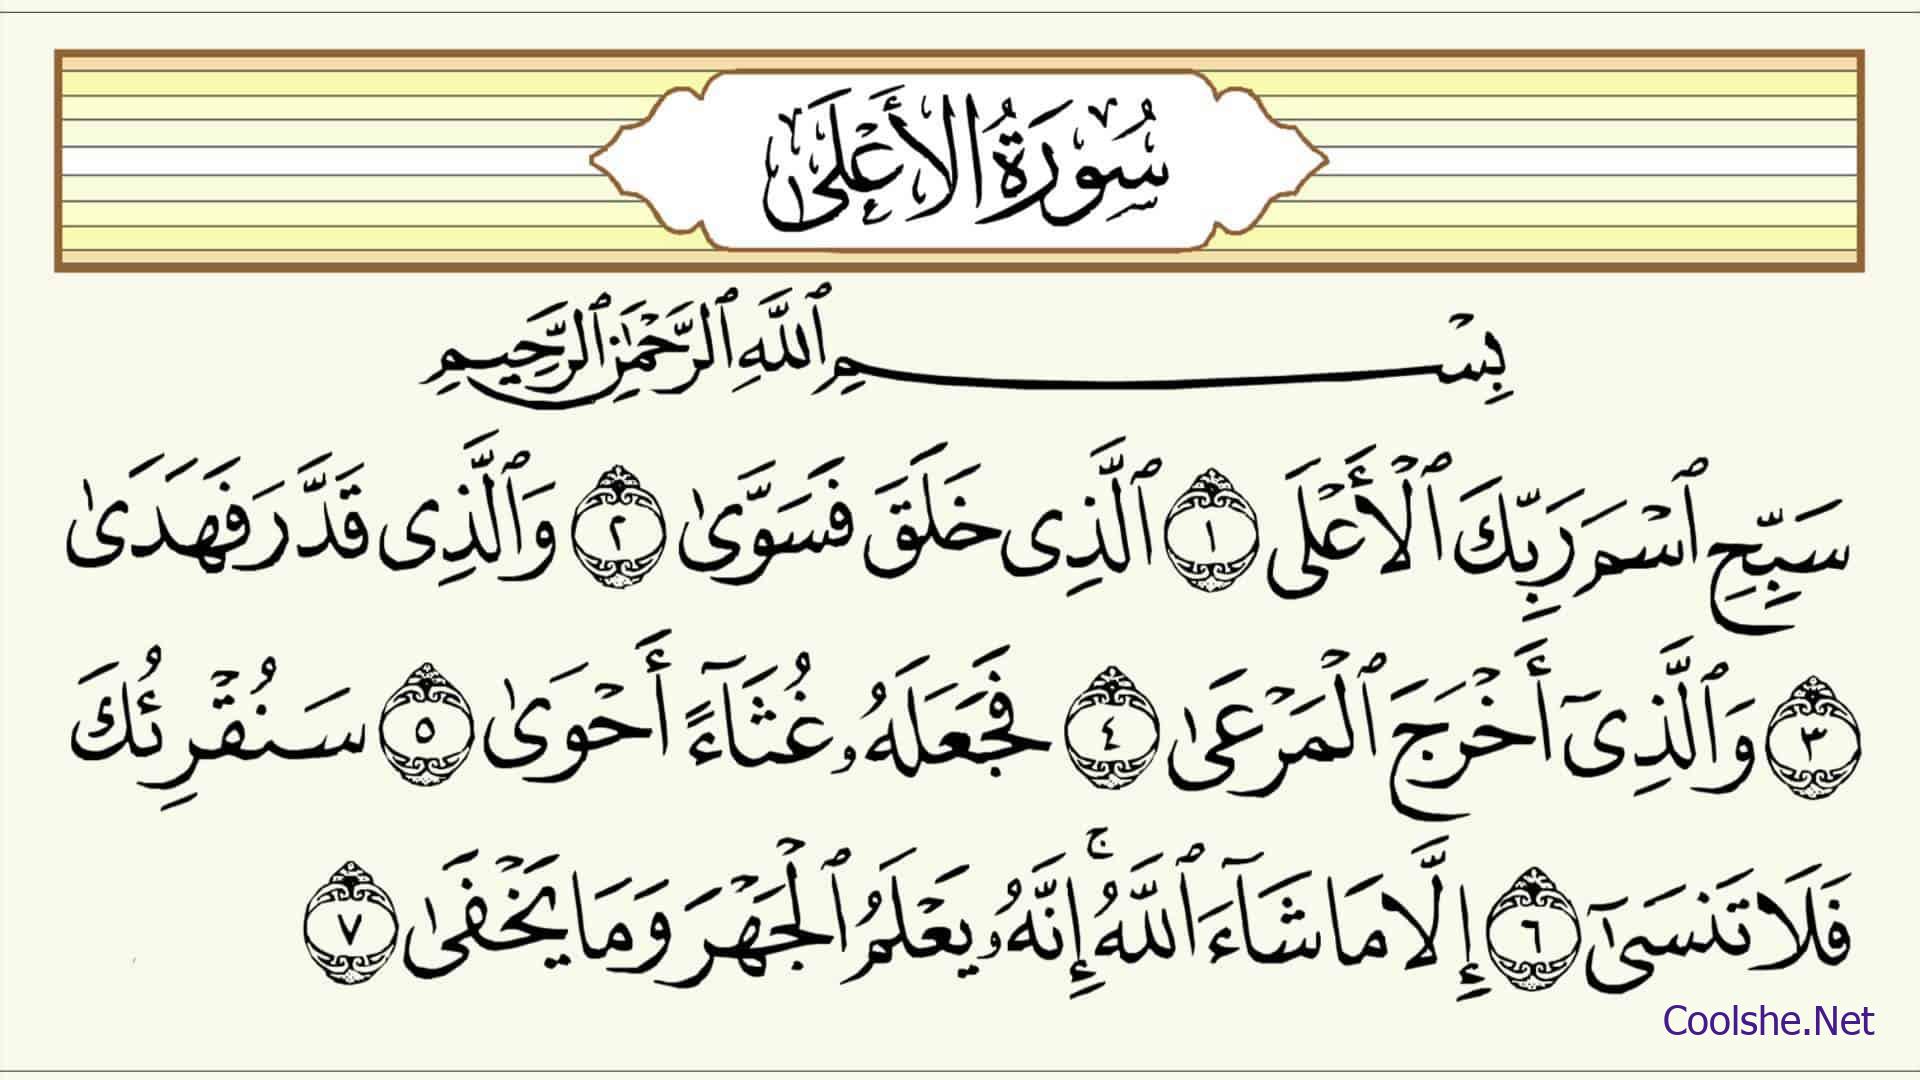 سُورَةُ الأَعْلَى
بِسْمِ ٱللَّهِ ٱلرَّحْمَٰنِ ٱلرَّحِيمِ
سَبِّحِ ٱسْمَ رَبِّكَ ٱلْأَعْلَى ١ ٱلَّذِى خَلَقَ فَسَوَّىٰ ٢ وَٱلَّذِى قَدَّرَ فَهَدَىٰ
٣ وَٱلَّذِىٓ أَخْرَجَ ٱلْمَرْعَىٰ ٤ فَجَعَلَهُۥ غُثَآءً أَحْوَىٰ ٥ سَنُقْرِئُكَ
فَلَا تَنسَىٰٓ ٦ إِلَّا مَا شَآءَ ٱللَّهُ ۚ إِنَّهُۥ يَعْلَمُ ٱلْجَهْرَ وَمَا يَخْفَىٰ ٧
Coolshe.Net